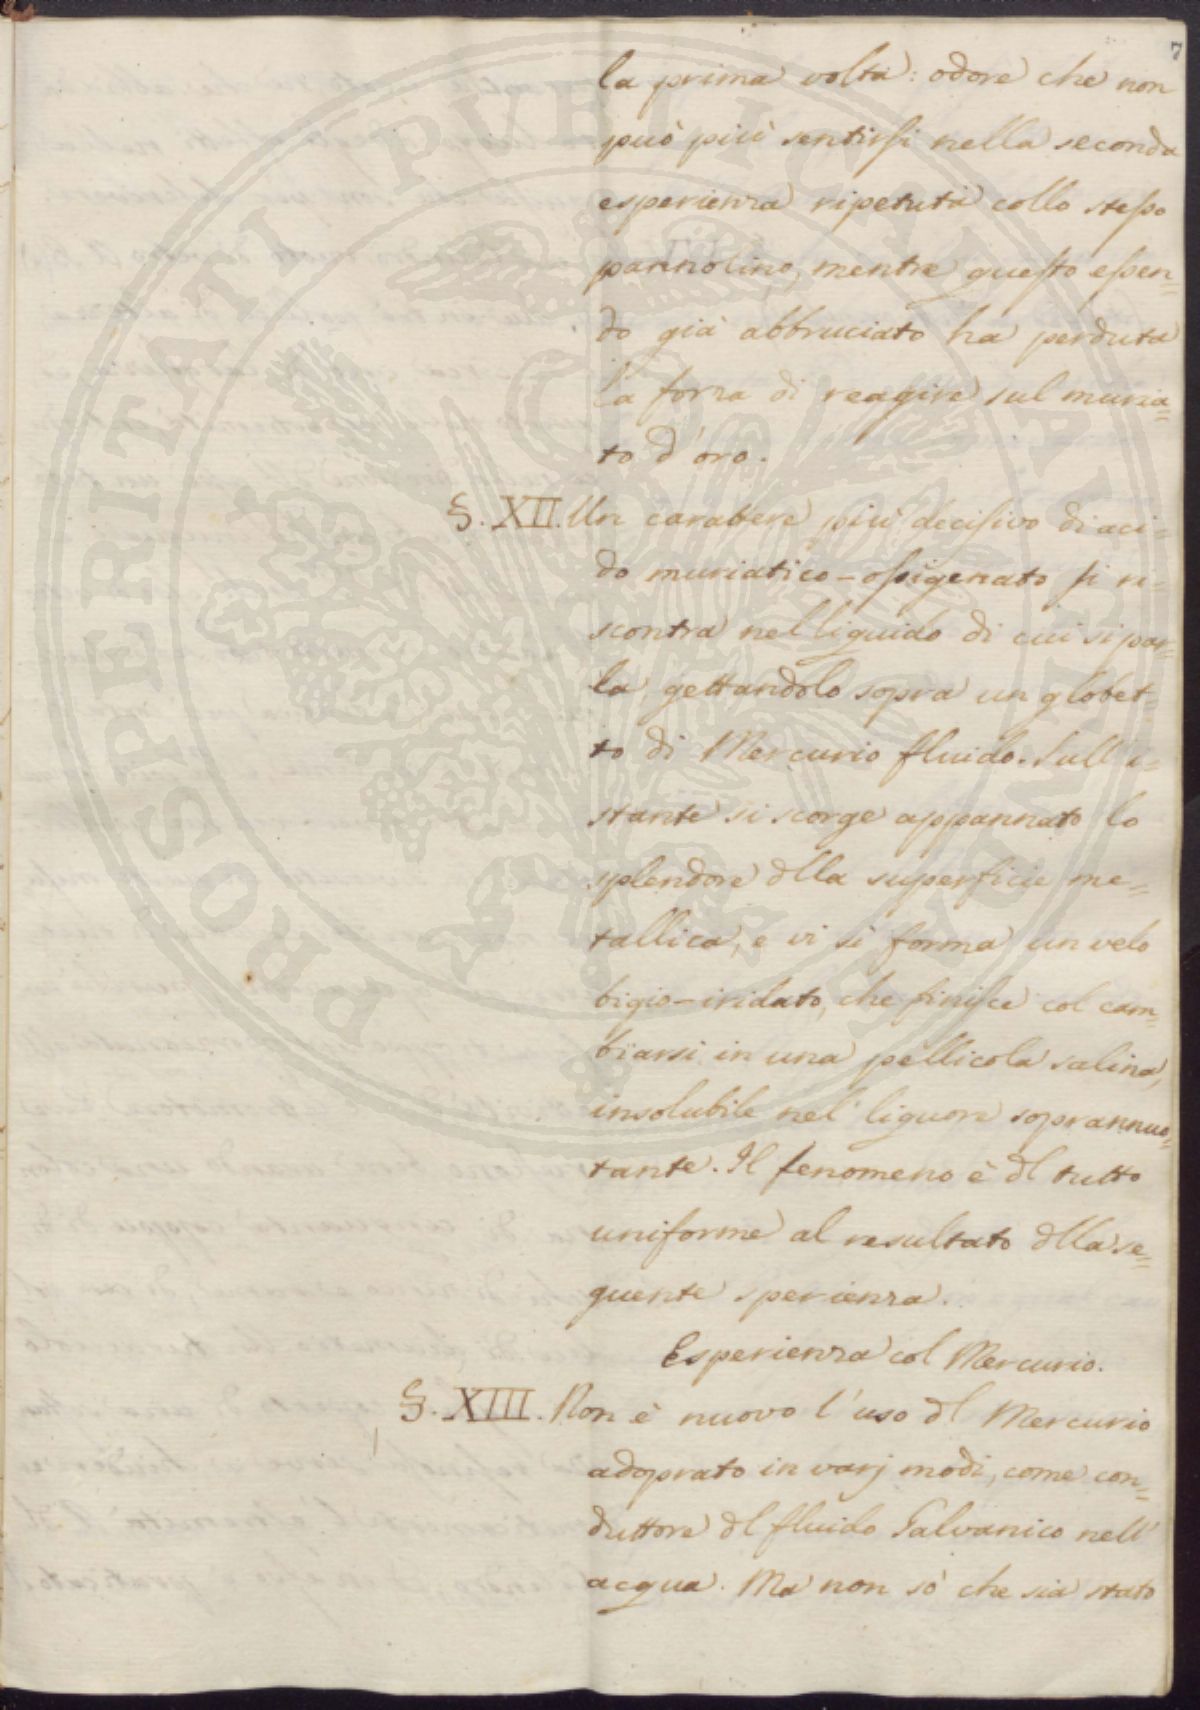 7
la prima volta: odore che non
può più sentirsi nella seconda
esperienza ripetuta collo stesso
pannolino, mentre questo essen=
do già abbruciato ha perduta
la forza di reagire sul muria=
to d'oro.
§. XII. Un carattere più decisivo di aci=
do muriatico-ossigenato si ri=
scontra nel liquido di cui si par=
la, gettandolo sopra un globet=
to di Mercurio fluido. Sull'i=
stante si scorge appannato lo
splendore dlla superficie me=
tallica, e vi si forma un velo
bigio-iridato, che finisce col cam=
biarsi in una pellicola salina,
insolubile nel liquore soprannuo=
tante. Il fenomeno è dl tutto
uniforme al resultato dlla se=
guente sperienza.
Esperienza col Mercurio.
§. XIII. Non è nuovo l'uso dl Mercurio
adoprato in varj modi, come con=
duttore dl fluido Galvanico nell'
acqua. Ma non sò che sia stato
PROSPERITATI PUBLICAE AUGENDAE